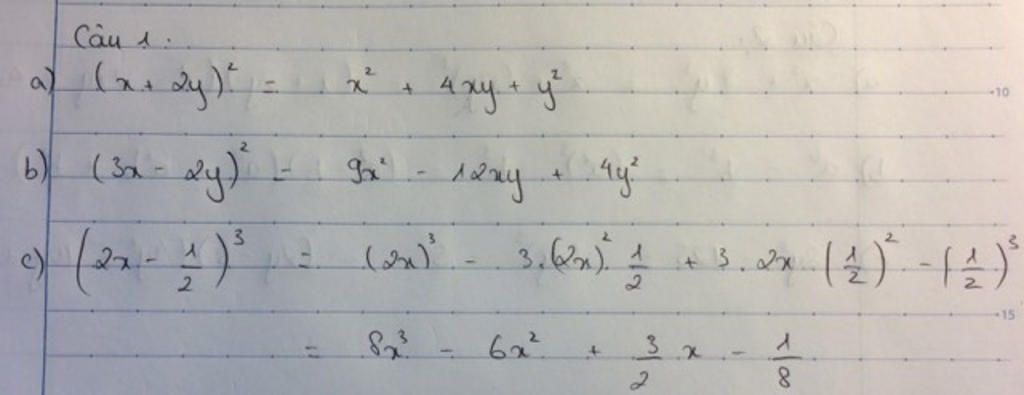 Câu 1.
a) (x + 2y)² = x² + 4xy + y²
b) (3x - 2y)² = 9x² - 12xy + 4y²
c) (2x - 1/2)³ = (2x)³ - 3.(2x)².1/2 + 3.2x.(1/2)² - (1/2)³
= 8x³ - 6x² + 3/2 x - 1/8
10
15